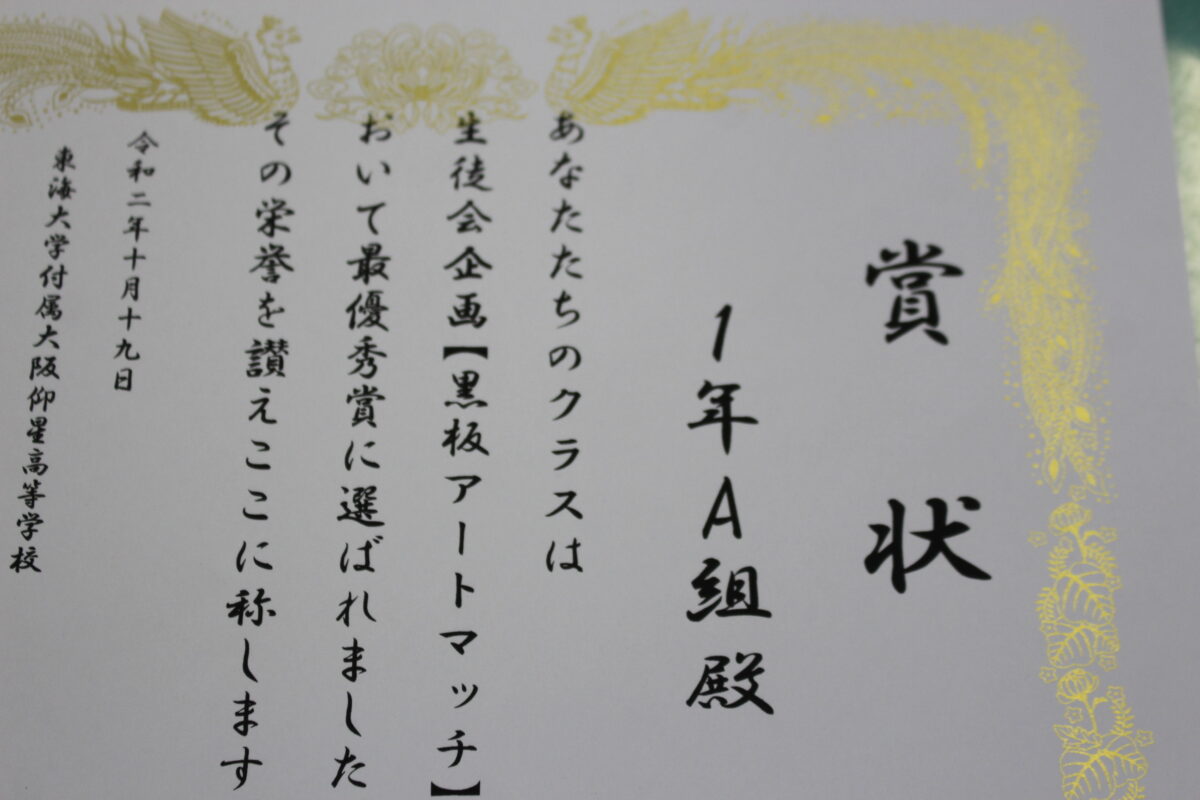 賞状
1年A組殿
あなたたちのクラスは
生徒会企画【黒板アートマッチ】
おいて最優秀賞に選ばれました
その栄誉を讃えここに称します
令和二年十月十九日
東海大学付属大阪仰星高等学校